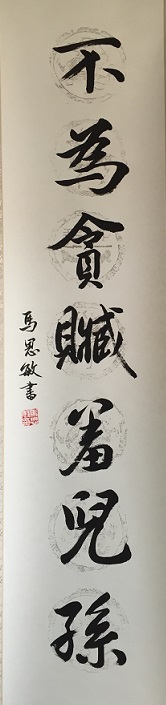 不為貪贓羞兒孫
馬恩敏書